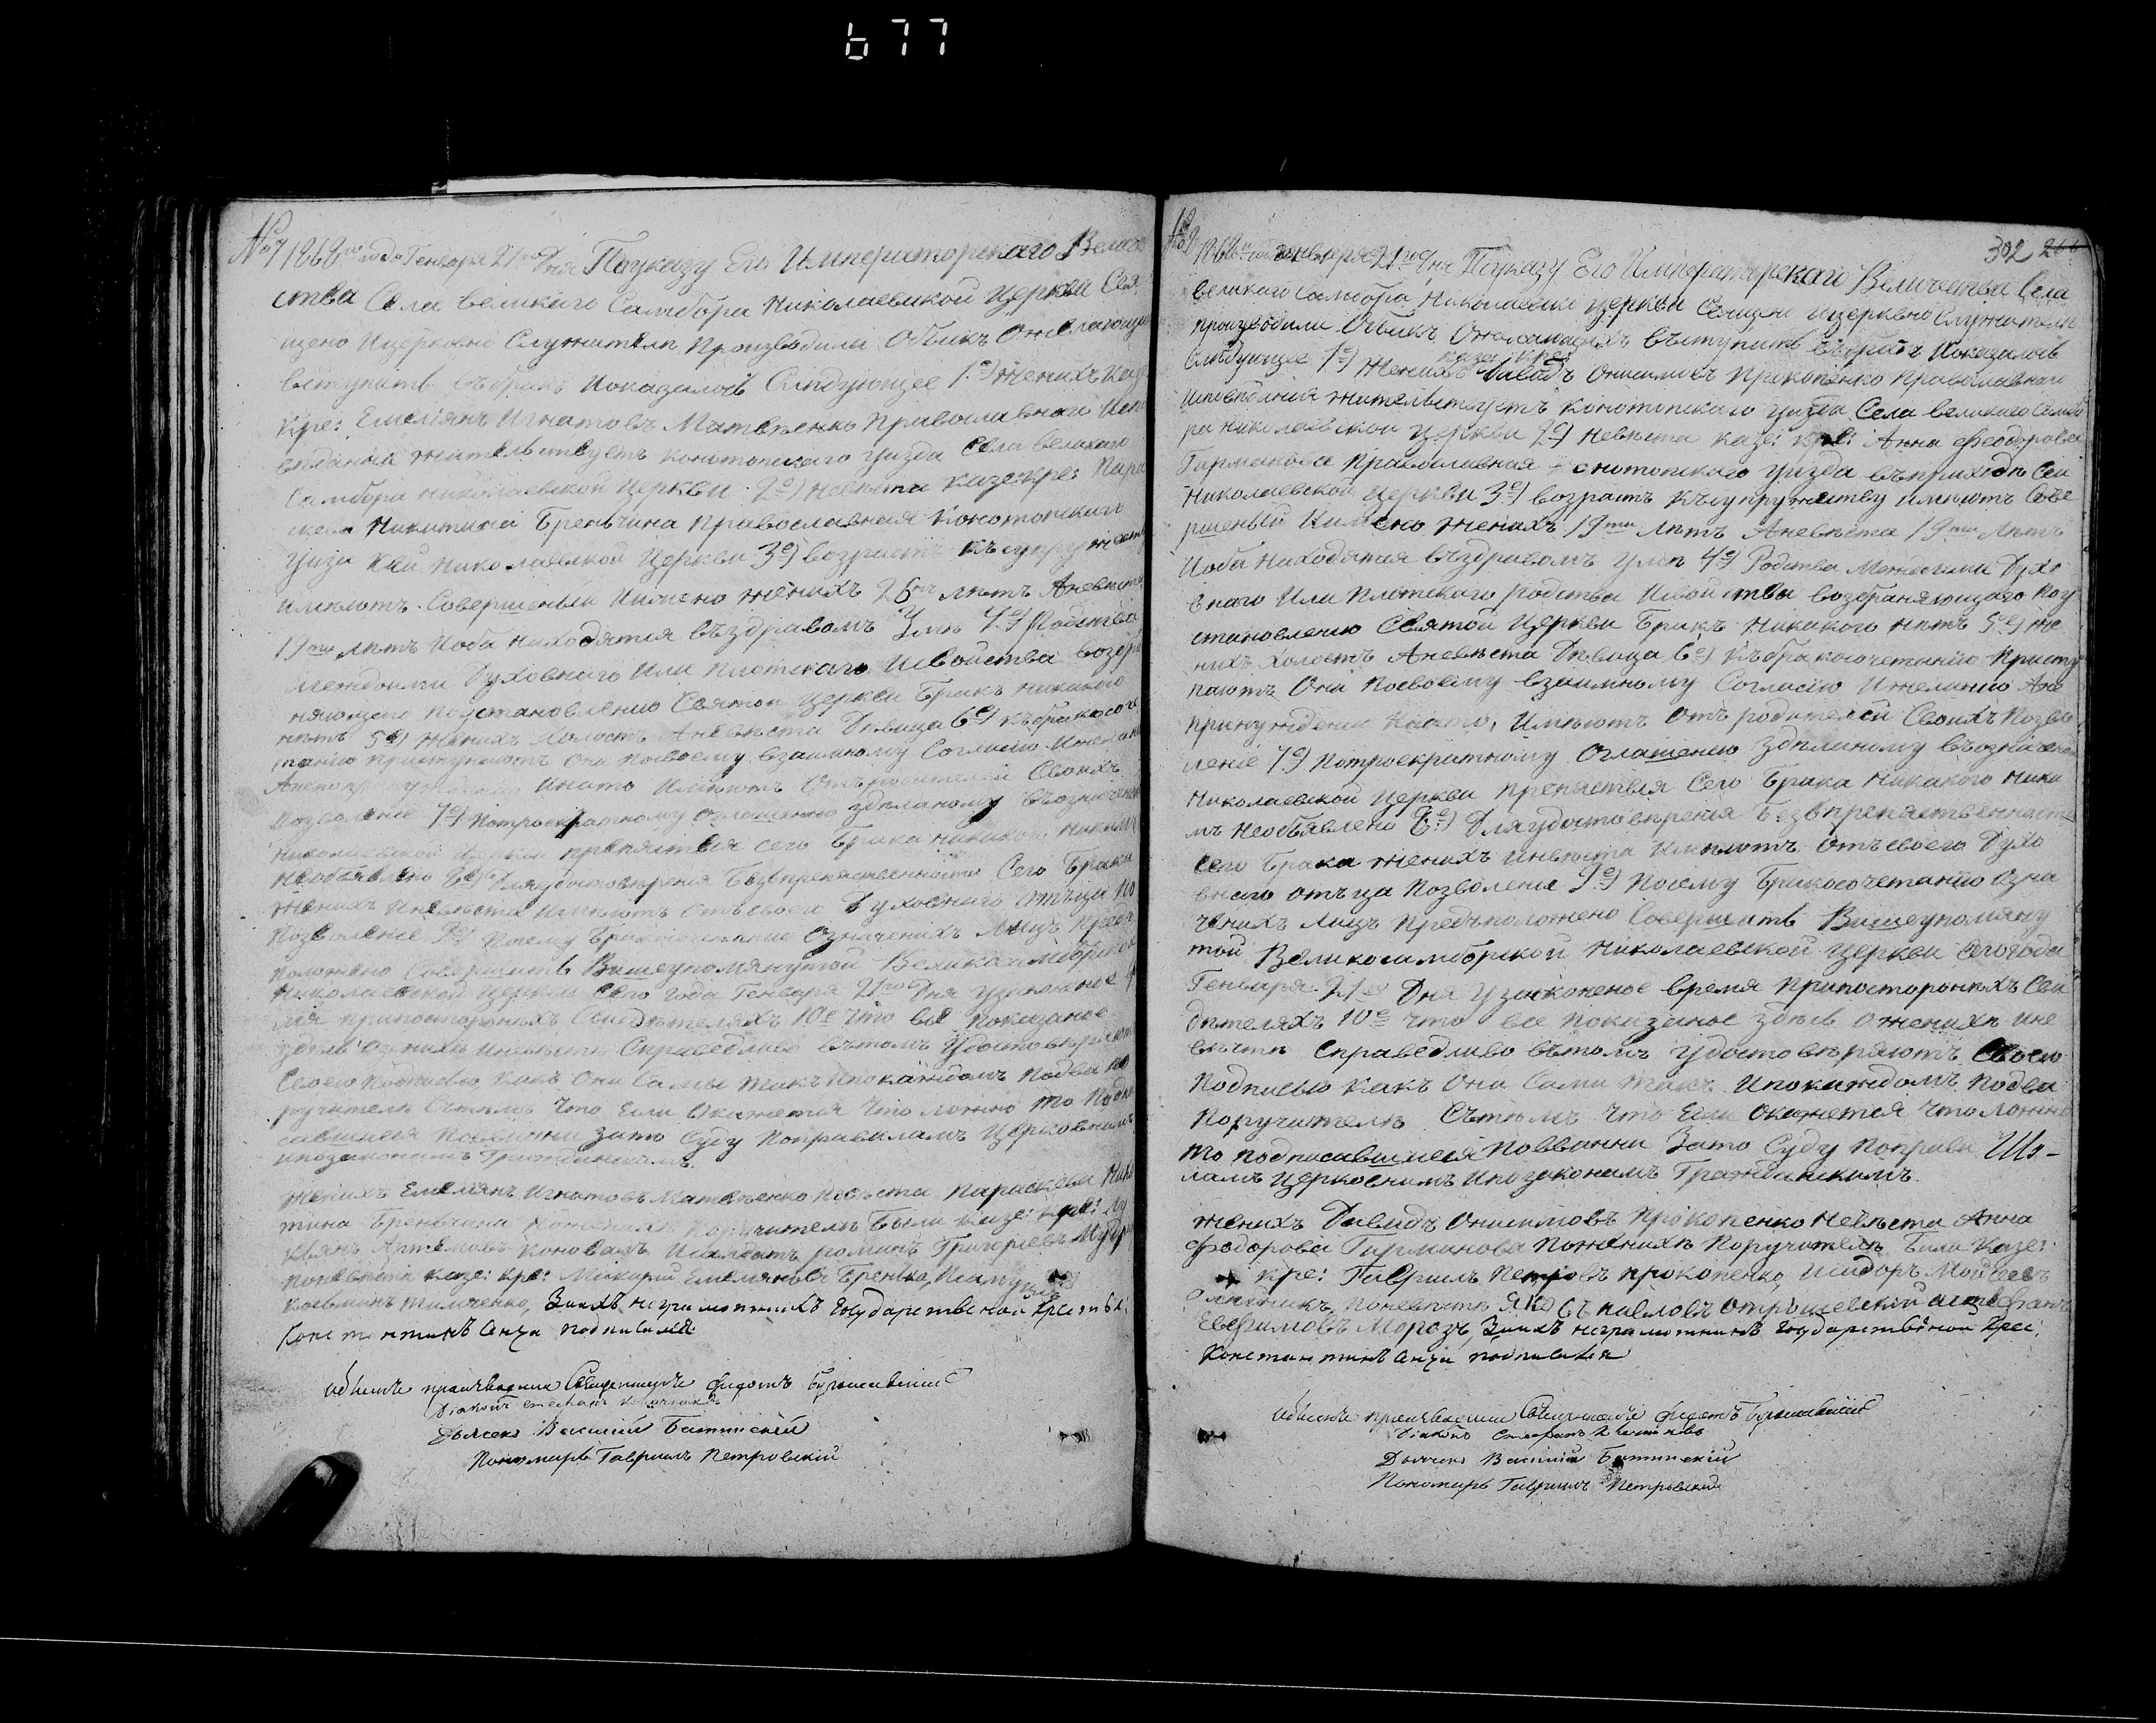 677
№ 7 1868го года Генваря 21го Дня По указу Его Императорского Велич
ства Села великаго Самбора Николаевской Церкви Свя
щено ицерковно Служители Производили Обыскъ Ожелающих
вступить въбракъ Иоказалось Следующее 1е) Женихъ Казе
Кре: Емелянъ Игнатовъ Матвѣенко Православнаго Испо
веданія жительствуетъ конотопскаго уизда Села великаго
Самбора николаевской церкви 2е) Невѣста казе: кре: Пара
скева Никитина Бренчина православная Конотопскаго
уизда николаевской Церкви 3е) возрастъ къ супружеств
имѣютъ Совершеный Иимено женихъ 26ти лѣтъ Аневѣста
19ти лѣтъ Иоба находятся въздравомъ Умѣ 4е) Родства
междоими Духовнаго Или плотскаго Исвойства возбра
няющаго поустановлению Святой Церкви Бракъ никакого
нѣтъ 5е) женихъ холостъ Аневѣста Дѣвица 6е) къбракосоче
танию приступаютъ Они Посвоему взаимному Согласию Ижелан
Инато Имѣютъ Отъродителей Своихъ
позволение 7е) Потроекратному оглашению зделаному въозначен
николаевской церкви препятствя сего Брака никакого никим
необявлено 8е) Дляудостовѣрения Безпрепятственности Сего Брака
женихъ Иневѣста имѣютъ отъсвоего Духовнаго отъца По
позволение 9е) Посему Бракосочетание Означенихъ Лицъ Предъ
положено Совершить Вишеупомянутой Великосамборско
Николаевской церкви Сего года Генваря 21го Дня узаконеное в
мя припостороннихъ Свидѣтеляхъ 10е Что всё показаное
здѣсь Оженихѣ иневѣсте Справедливо вътомъ Удостовѣряютъ
Своею Подписью какъ Они Сами такъ Ипокаждомъ Подва по
ручителя Сътѣмъ Что Если Окажется Что ложно то Подпи
савшиеся Повинни зато Суду Поправиламъ Церковнимъ
ипозаконамъ Гражданскимъ.
женихъ Емелянъ Игнатовъ Матвѣенко Невѣста Параскева Ники
тина Бренчина Поженихѣ Поручители Были казе: кре: Лу
кянъ Артемовъ Коновалъ Исалдатъ романъ Григориевъ
поневѣсте казе: кре: Макарий Емеляновъ Бренко,
Тимченко, Заихъ неграмотнихъ Государственой крестян:
Константинъ Анча подписался
Обыскъ производили Священникъ Федотъ
Діаконъ Стефанъ
Дьячекъ Василий Батинскій
Пономарь Гавриилъ Петровскій
302 266
№ 8 1868го года генваря 21го Дня Поуказу Его Императорскаго Величества Села
великаго Самбора, Николаевской церкви Священо ицерковно Служители
производили Обыскъ Ожелающихъ въступить въбракъ Иоказалось
казе: кре:
Слѣдующее 1е) Женихъ Давидъ Онисимовъ Прокопенко православнаго
исповѣдания жительствуетъ конотопскаго уизда Села великаго Самбо
ра николаевской церкви 2е) Невѣста казе: кре: Анна Феодорова
Гирманова православная конотопскаго уизда въприходѣ Сей
Николаевской Церкви 3е) возрастъ късупружеству имѣютъ Сове
ршеный Иимено женихъ 19ти лѣтъ Аневѣста 19ти лѣтъ
Иоба находятся въздравомъ умѣ 4е) Родства Междоими Духо
внаго Или Плотскаго родства Исвойства возбраняющаго поу
становлению Святой Церкви Бракъ Никакого нѣтъ 5е) Же
нихъ холостъ Аневѣста Дѣвица 6е) къбракосочетанию присту
паютъ Они Посвоему взаимному Согласию Ижеланию Ане
принуждени Инато, Имѣютъ Отъ родителей Своихъ Позво
ление 7е) Потроекратному Оглашению Зделаному въозначеной
Николаевской Церкви препятствия Сего Брака Никакого Ники
мъ необъявлено 8е) Дляудостовѣрения Безпрепятственности
сего Брака женихъ иневѣста имѣютъ отъсвоего Духо
внаго отъца Позволение 9е) Посему Бракосочетанию Озна
ченихъ лицъ Предъположено Совершить Вишеупомяну
той Великосамборской Николаевской церкви сегогода
Генваря 21го Дня Узаконеное время припосторонихъ Сви
дѣтеляхъ 10е что все показаное здѣсь Оженихѣ ине
вѣсте Справедливо вътомъ удостовѣряютъ Своею
Подписью какъ Они Сами такъ Ипокаждомъ подва
Поручителя Сътѣмъ Что Если Окажется Что ложно
то подписавшиеся Повинни Зато Суду Поправи
ламъ Церковнимъ Ипозаконамъ Гражданскимъ.
женихъ Давидъ Онисимовъ Прокопенко Невѣста Анна
Феодорова Гирманова Поженихѣ Поручители Били Казе:
кре: Гавриилъ Петровъ прокопенко, Исидоръ Мойсеевъ
поневѣсте Яковъ павловъ истефанъ
Евфимовъ Морозъ, Заихъ неграмотнихъ Государственой Крес:
Константинъ Анча подписался
Обыскъ производили Священникъ Федотъ
Діаконъ Стефанъ
Дьячекъ Василий Батинскій
Пономарь Гавриилъ Петровскій